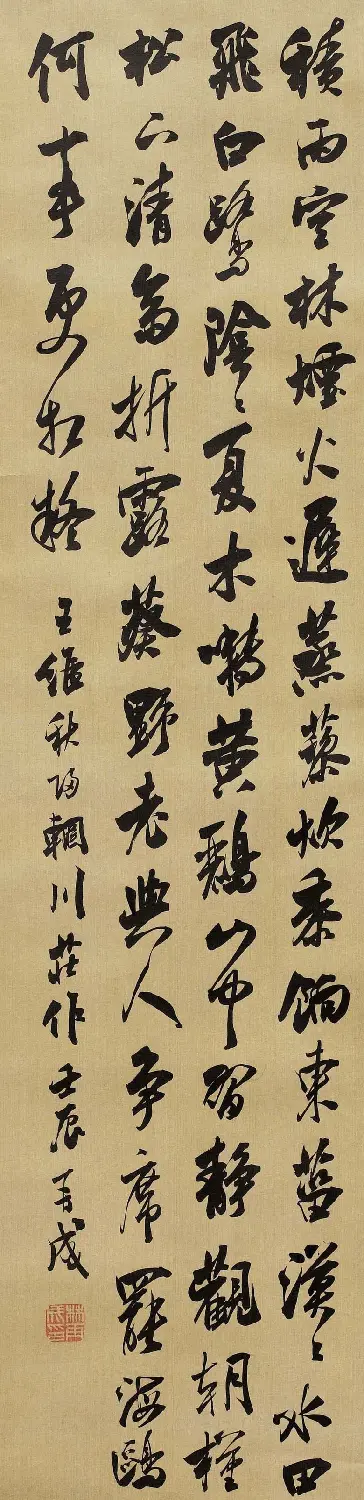 積雨空林煙火遲蒸藜炊黍餉東菑漠〻水田
飛白鷺陰〻夏木囀黃鸝山中習靜觀朝槿
松下清齋折露葵野老與人争席罷海鷗
何事更相疑 王維秋歸輞川莊作 壬辰 成